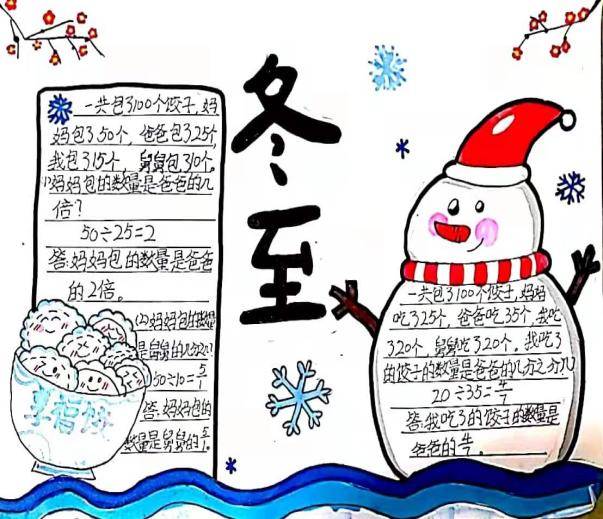 冬至
一共包了100个饺子,妈
妈包了50个,爸爸包了25个,
我包了15个,舅舅包了10个。
(1)妈妈包的数量是爸爸的几
倍?
50÷25=2
答:妈妈包的数量是爸爸
的2倍。
(2)妈妈包的数量
是舅舅的几分之几?
50÷10=5/1
答:妈妈包的
数量是舅舅的5/1。
一共包了100个饺子,妈妈
吃了25个,爸爸吃35个,我吃
了20个,舅舅吃了20个。我吃了
的饺子的数量是爸爸的几分之几
20÷35=4/7
答:我吃了的饺子的数量是
爸爸的4/7。